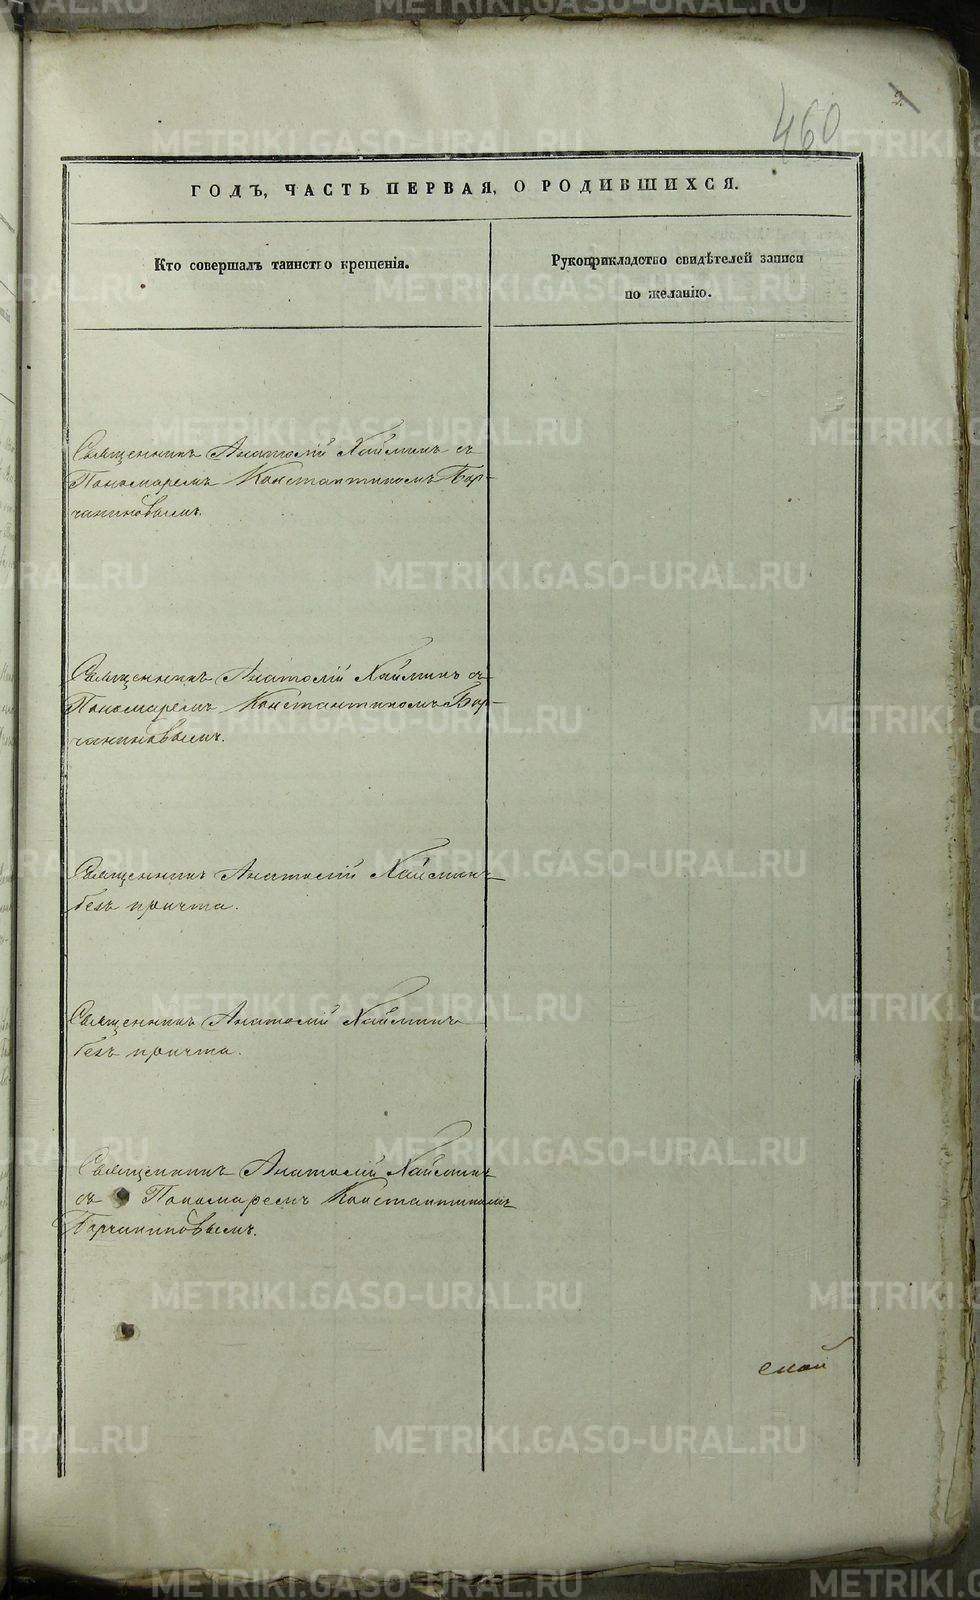 460
ГОДЪ, ЧАСТЬ ПЕРВАЯ, О РОДИВШИХСЯ.
Кто совершалъ таинство крещенія.
Рукоприкладство свидѣтелей записи
по желанію.
Священникъ Анатолій Хайминъ съ
Пономаремъ Константиномъ Бор-
чаниновымъ.
Священникъ Анатолій Хайминъ съ
Пономаремъ Константиномъ Бор-
чаниновымъ.
Священникъ Анатолій Хайминъ
безъ причта.
Священникъ Анатолій Хайминъ
безъ причта.
Священникъ Анатолій Хайминъ
съ Пономаремъ Константиномъ
Борчаниновымъ.
METRIKI.GASO-URAL.RU